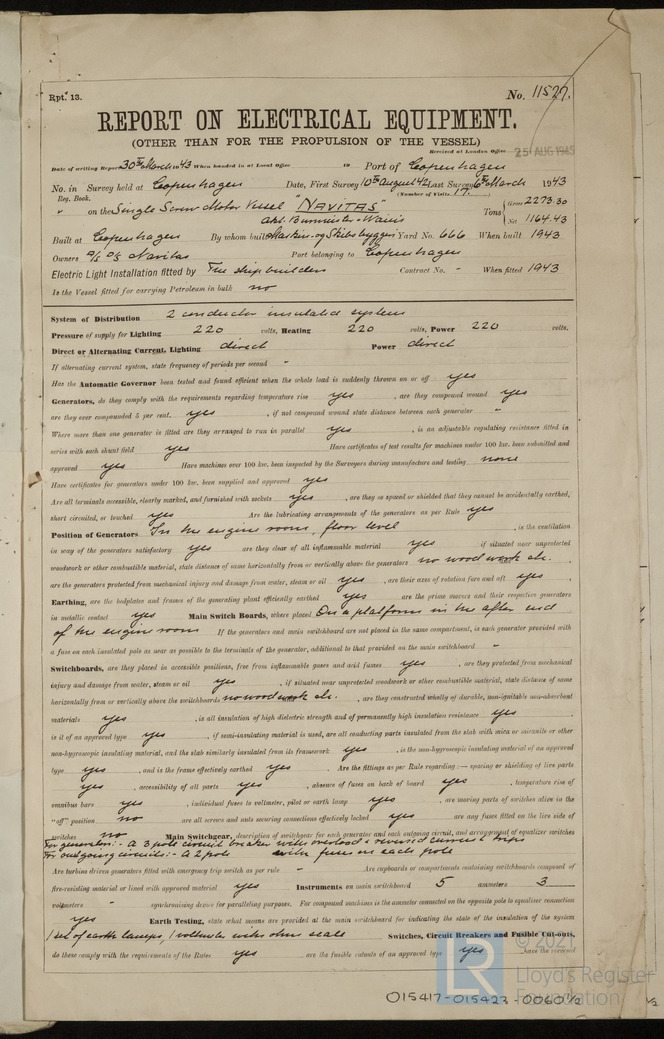 Rpt. 13.
No. 11527.
REPORT ON ELECTRICAL EQUIPMENT.
(OTHER THAN FOR THE PROPULSION OF THE VESSEL)
Received at London Office 25 AUG 1945
Date of writing Report 30th March 1943 When handed in at Local Office 19 Port of Copenhagen
No. in Survey held at Copenhagen Date, First Survey 10th August 42 Last Survey 6th March 1943
Reg. Book. (Number of Visits 17.)
" on the Single Screw Motor Vessel "NAVITAS" Tons { Gross 2273.30
Net 1164.43
Akt. Burmeister & Wain's
Built at Copenhagen By whom built Maskin- og Skibsbyggeri Yard No. 666 When built 1943
Owners A/S D/S Navitas Port belonging to Copenhagen
Electric Light Installation fitted by The shipbuilders Contract No. - When fitted 1943
Is the Vessel fitted for carrying Petroleum in bulk no
System of Distribution 2 conductor insulated system
Pressure of supply for Lighting 220 volts, Heating 220 volts, Power 220 volts.
Direct or Alternating Current, Lighting direct Power direct
If alternating current, state frequency of periods per second "
Has the Automatic Governor been tested and found efficient when the whole load is suddenly thrown on or off yes
Generators, do they comply with the requirements regarding temperature rise yes , are they compound wound yes
are they over compounded 5 per cent. yes , if not compound wound state distance between each generator "
Where more than one generator is fitted are they arranged to run in parallel yes , is an adjustable regulating resistance fitted in
series with each shunt field yes Have certificates of test results for machines under 100 kw. been submitted and
approved yes Have machines over 100 kw. been inspected by the Surveyors during manufacture and testing none
Have certificates for generators under 100 kw. been supplied and approved yes
Are all terminals accessible, clearly marked, and furnished with sockets yes , are they so spaced or shielded that they cannot be accidentally earthed,
short circuited, or touched yes Are the lubricating arrangements of the generators as per Rule yes
Position of Generators In the engine room, floor level , is the ventilation
in way of the generators satisfactory yes are they clear of all inflammable material yes if situated near unprotected
woodwork or other combustible material, state distance of same horizontally from or vertically above the generators no wood work etc.
are the generators protected from mechanical injury and damage from water, steam or oil yes , are their axes of rotation fore and aft yes .
Earthing, are the bedplates and frames of the generating plant efficiently earthed yes are the prime movers and their respective generators
in metallic contact yes Main Switch Boards, where placed On a platform in the after end
of the engine room If the generators and main switchboard are not placed in the same compartment, is each generator provided with
a fuse on each insulated pole as near as possible to the terminals of the generator, additional to that provided on the main switchboard "
Switchboards, are they placed in accessible positions, free from inflammable gases and acid fumes yes , are they protected from mechanical
injury and damage from water, steam or oil yes , if situated near unprotected woodwork or other combustible material, state distance of same
horizontally from or vertically above the switchboards no wood work etc. , are they constructed wholly of durable, non-ignitable non-absorbent
materials yes , is all insulation of high dielectric strength and of permanently high insulation resistance yes ,
is it of an approved type yes , if semi-insulating material is used, are all conducting parts insulated from the slab with mica or micanite or other
non-hygroscopic insulating material, and the slab similarly insulated from its framework yes , is the non-hygroscopic insulating material of an approved
type yes , and is the frame effectively earthed yes . Are the fittings as per Rule regarding:— spacing or shielding of live parts
yes , accessibility of all parts yes , absence of fuses on back of board yes , temperature rise of
omnibus bars yes , individual fuses to voltmeter, pilot or earth lamp yes , are moving parts of switches alive in the
"off" position no are all screws and nuts securing connections effectively locked yes are any fuses fitted on the live side of
switches no Main Switchgear, description of switchgear for each generator and each outgoing circuit, and arrangement of equalizer switches
For generators:- A 3 pole circuit breaker with overload & reversed current trips
For outgoing circuits:- A 2 pole with fuse on each pole
Are turbine driven generators fitted with emergency trip switch as per rule " Are cupboards or compartments containing switchboards composed of
fire-resisting material or lined with approved material yes Instruments on main switchboard 5 ammeters 3
voltmeters " synchronising device for paralleling purposes. For compound machines is the ammeter connected on the opposite pole to equaliser connection
yes Earth Testing, state what means are provided at the main switchboard for indicating the state of the insulation of the system
1 set of earth lamps, 1 voltmeter with ohm scale Switches, Circuit Breakers and Fusible Cut-outs,
do these comply with the requirements of the Rules yes are the fusible cutouts of an approved type yes , have the reversed
© 2021
LR
Lloyd's Register
Foundation
015417-015423-0060 1/2